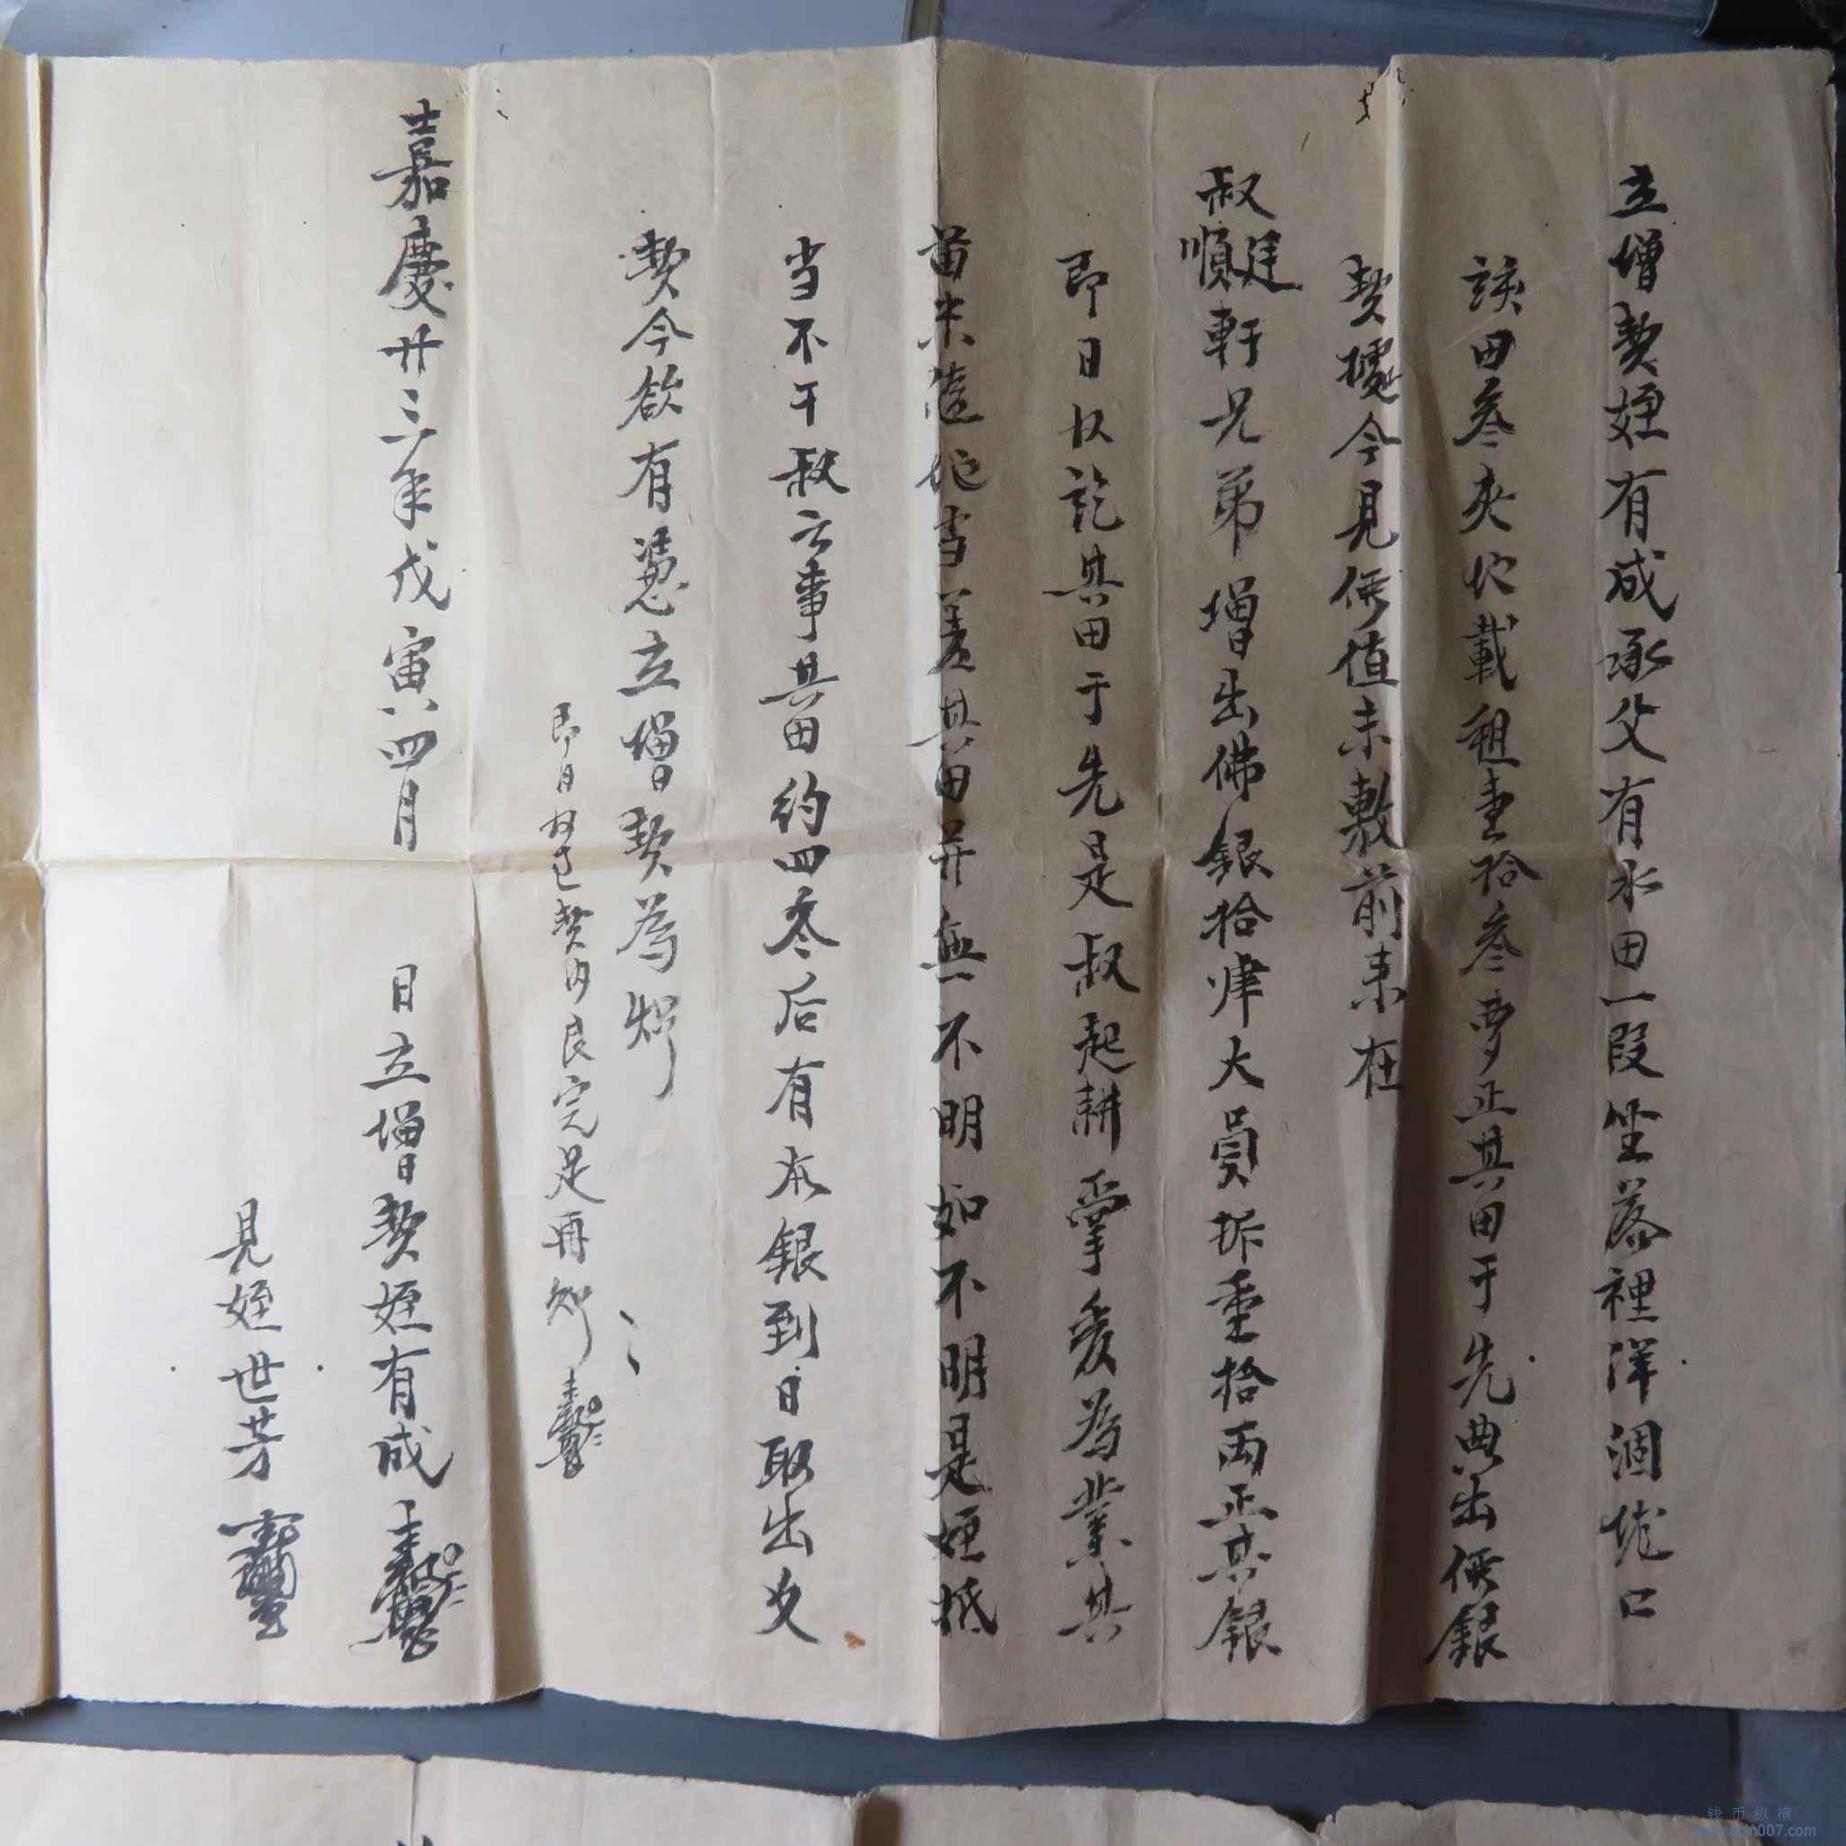 立增契姪有成承父有水田一段坐落裡洋涸垅口
該田叁夾坵載租壹拾叁両正其田于先典出価銀
契攄今見価值未敷前来在
叔順廷軒兄弟增出佛銀拾肆大員折重拾両正其銀
即日収訖其田于先是叔起耕掌管為業其
苗米随他当差其田并無不明如不明是姪抵
当不干叔之事其田約四冬后有本銀到日取出文
契今欲有憑立增契為炤
即日収过契内艮完足再炤
嘉慶廿三年戊寅四月 日立增契姪有成
見姪世芳
钱币纵横
www.cqjn007.com